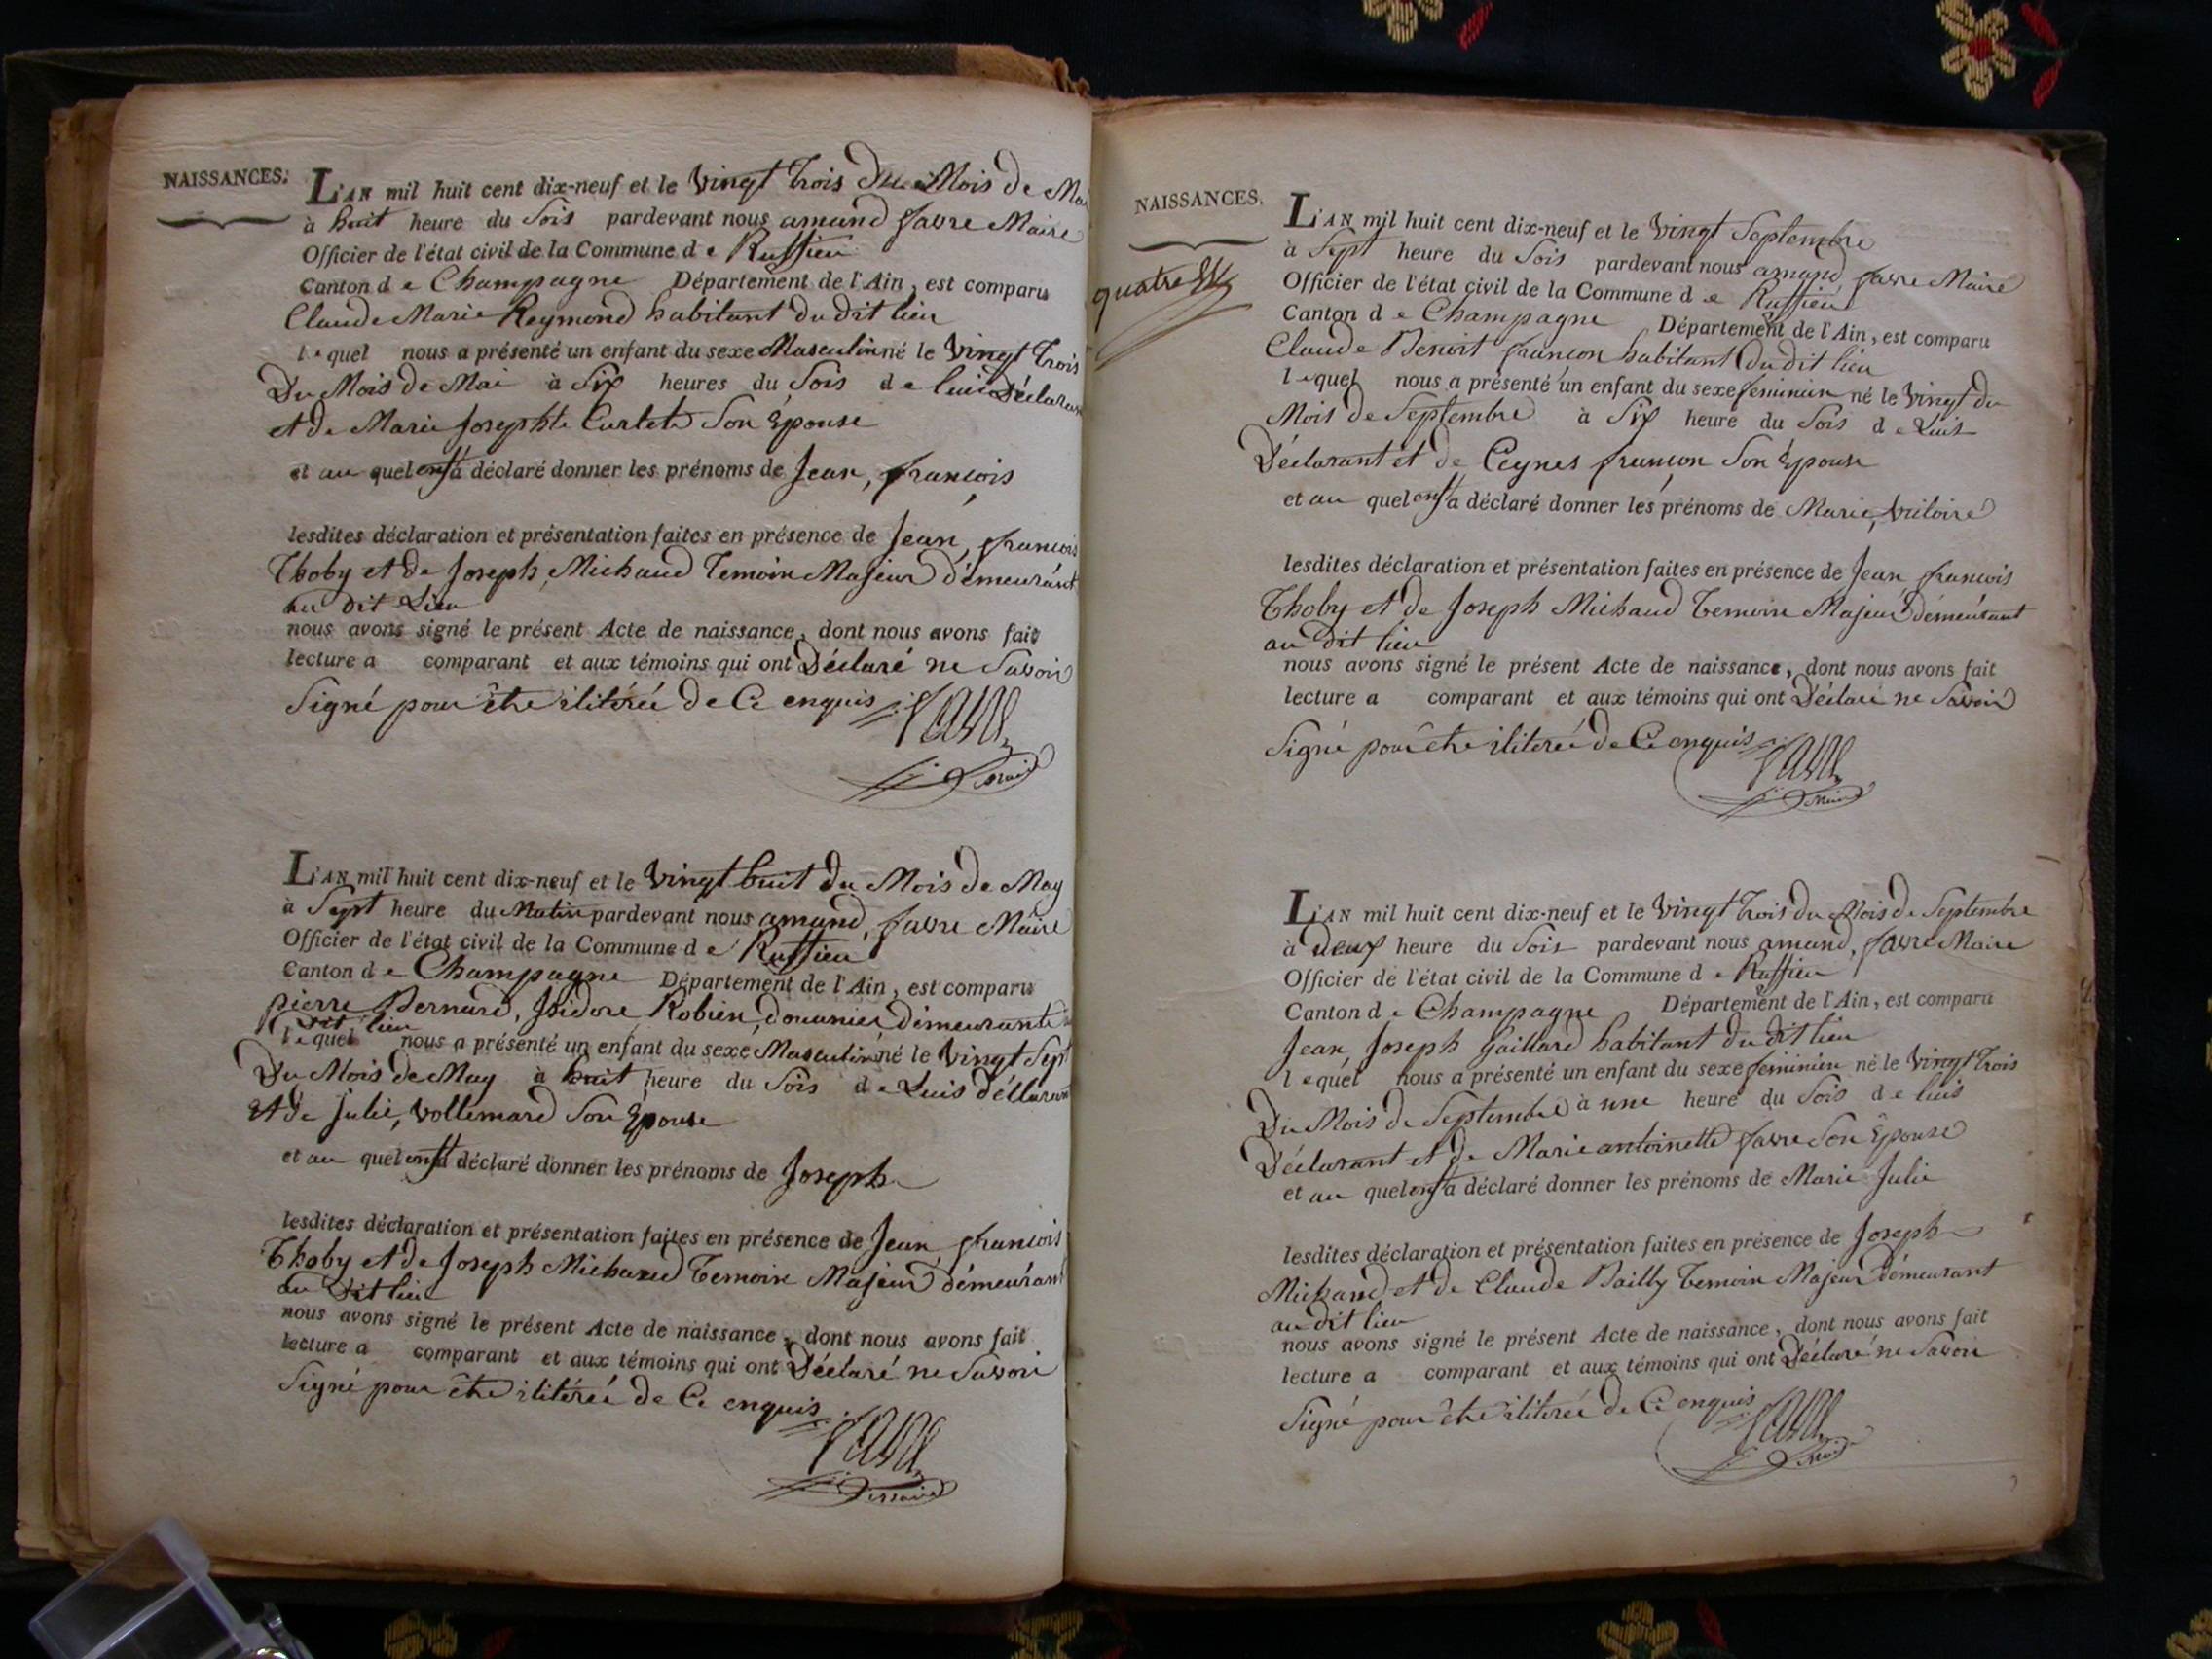 NAISSANCES.
L'AN mil huit cent dix-neuf et le vingt trois du Mois de Mai
à huit heure du Soir pardevant nous amand favre Maire
Officier de l'état civil de la Commune de Ruffieu
Canton de Champagne Département de l'Ain, est comparu
Claude Marie Reymond habitant du dit lieu
lequel nous a présenté un enfant du sexe Masculin né le vingt trois
Du Mois de Mai à Six heures du Soir de lui Déclarant
et de Marie Josephte Curtet Son Epouse
et au quel enft a déclaré donner les prénoms de Jean, françois
lesdites déclaration et présentation faites en présence de Jean, françois
Thoby et de Joseph, Michaud Temoin Majeur démeurant
au dit Lieu
nous avons signé le présent Acte de naissance, dont nous avons fait
lecture a comparant et aux témoins qui ont Déclaré ne Savoir
Signé pour être ilitérée de Ce enquis
favre
Maire
L'AN mil huit cent dix-neuf et le vingt huit du Mois de May
à Sept heure du Matin pardevant nous amand, favre Maire
Officier de l'état civil de la Commune de Ruffieu
Canton de Champagne Département de l'Ain, est comparu
pierre Bernard, Isidore Robien, douanier démeurant
dit lieu
lequel nous a présenté un enfant du sexe Masculin né le vingt Sept
Du Mois de May à huit heure du Soir de Luis déclarant
Et de Julie, vollemard Son Epouse
et au quel enft a déclaré donner les prénoms de Joseph
lesdites déclaration et présentation faites en présence de Jean françois
Thoby et de Joseph Michaud Temoin Majeur démeurant
au dit lieu
nous avons signé le présent Acte de naissance, dont nous avons fait
lecture a comparant et aux témoins qui ont Déclaré ne Savoir
Signé pour être ilitérée de Ce enquis
favre
Maire
NAISSANCES.
quatre
L'AN mil huit cent dix-neuf et le vingt Septembre
à Sept heure du Soir pardevant nous amand favre Maire
Officier de l'état civil de la Commune de Ruffieu
Canton de Champagne Département de l'Ain, est comparu
Claude Benoit françon habitant du dit lieu
lequel nous a présenté un enfant du sexe feminin né le vingt du
Mois de Septembre à Six heure du Soir de Luis
Déclarant et de Ceynes françon Son Epouse
et au quel enft a déclaré donner les prénoms de Marie, victoire
lesdites déclaration et présentation faites en présence de Jean françois
Thoby et de Joseph Michaud Temoin Majeur démeurant
au dit lieu
nous avons signé le présent Acte de naissance, dont nous avons fait
lecture a comparant et aux témoins qui ont Déclaré ne Savoir
Signé pour être ilitérée de Ce enquis
favre
Maire
L'AN mil huit cent dix-neuf et le vingt trois du Mois de Septembre
à deux heure du Soir pardevant nous amand, favre Maire
Officier de l'état civil de la Commune de Ruffieu
Canton de Champagne Département de l'Ain, est comparu
Jean, Joseph Gaillard habitant du dit lieu
lequel nous a présenté un enfant du sexe féminin né le vingt trois
Du Mois de Septembre à une heure du Soir de luis
Déclarant et de Marie antoinette favre Son Epouse
et au quel enft a déclaré donner les prénoms de Marie Julie
lesdites déclaration et présentation faites en présence de Joseph
Michaud et de Claude Bailly Temoin Majeur démeurant
au dit lieu
nous avons signé le présent Acte de naissance, dont nous avons fait
lecture a comparant et aux témoins qui ont Déclaré ne Savoir
Signé pour être ilitérée de Ce enquis
favre
Maire